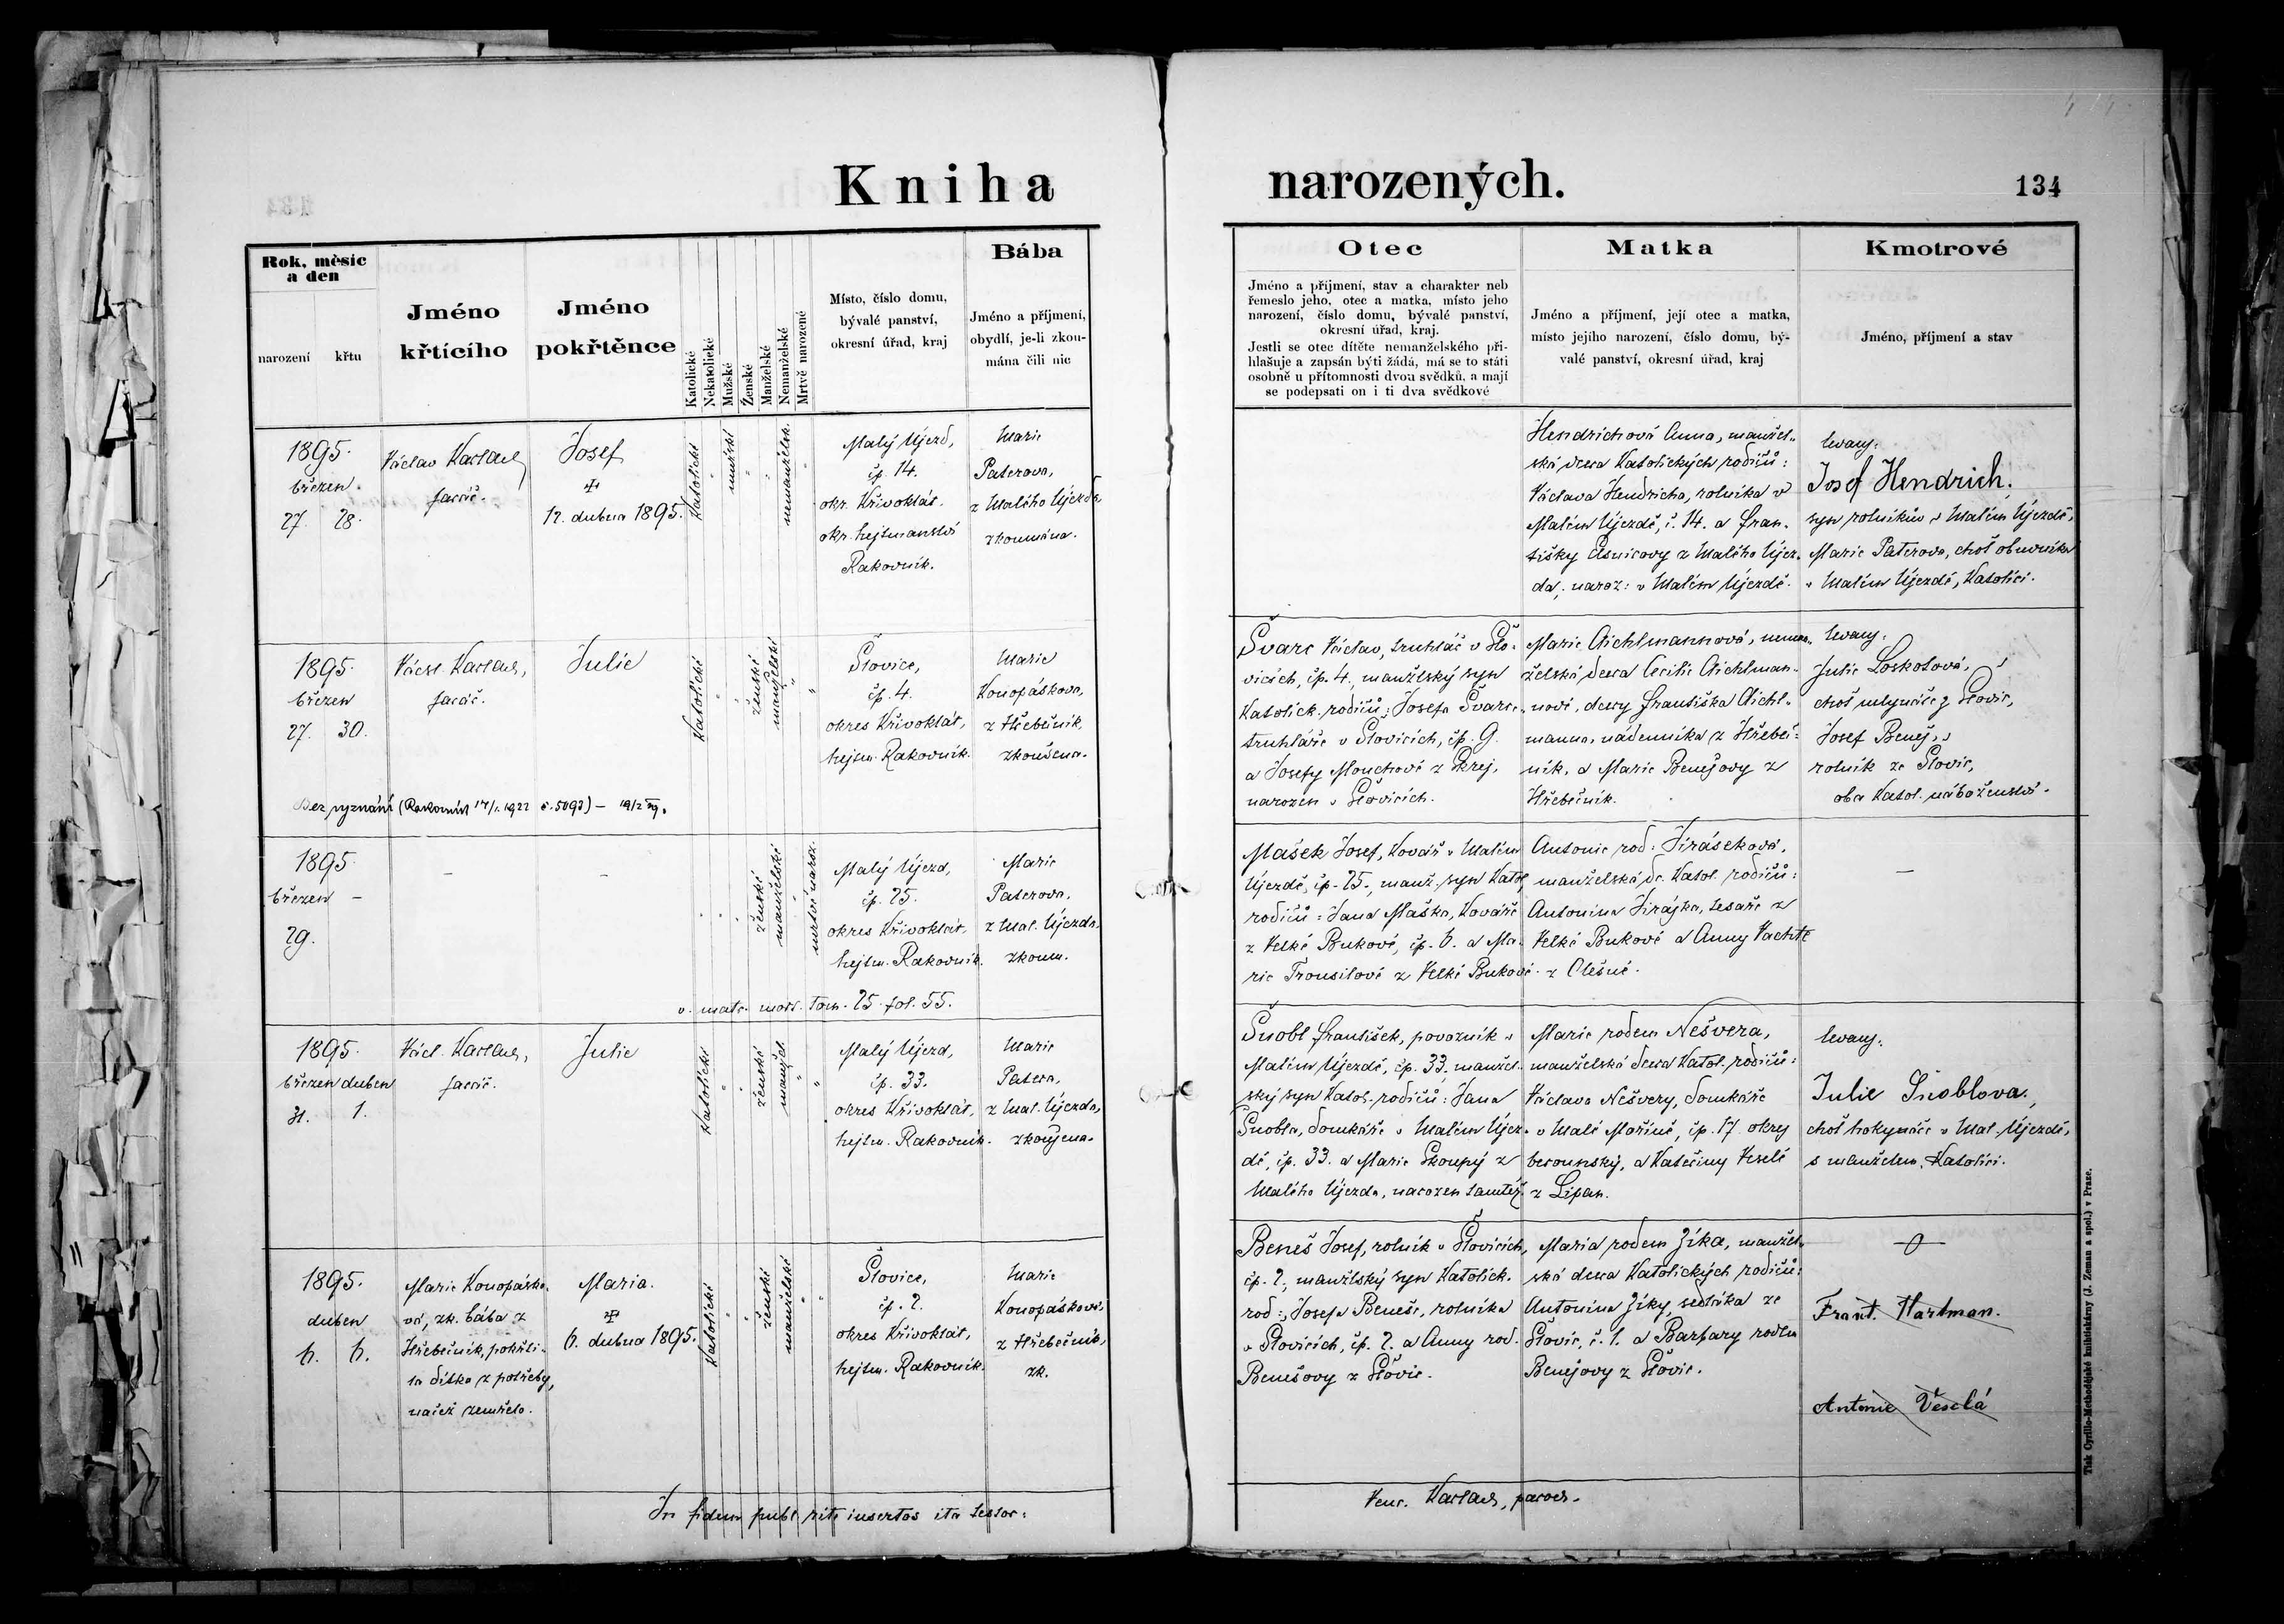 Kniha
narozených.
134
Rok, měsíc
a den
narození
křtu
Jméno
křtícího
Jméno
pokřtěnce
Katolické
Nekatolické
Mužské
Ženské
Manželské
Nemanželské
Mrtvě narozené
Místo, číslo domu,
bývalé panství,
okresní úřad, kraj
Bába
Jméno a příjmení,
obydlí, je-li zkou-
mána čili nic
Otec
Jméno a příjmení, stav a charakter neb
řemeslo jeho, otec a matka, místo jeho
narození, číslo domu, bývalé panství,
okresní úřad, kraj.
Jestli se otec dítěte nemanželského při-
hlašuje a zapsán býti žádá, má se to státi
osobně u přítomnosti dvou svědků, a mají
se podepsati on i ti dva svědkové
Matka
Jméno a příjmení, její otec a matka,
místo jejího narození, číslo domu, bý-
valé panství, okresní úřad, kraj
Kmotrové
Jméno, příjmení a stav
1895.
březen.
27. 28.
Václav Karlach
farář.
Josef
12. dubna 1895.
Katolické
mužské
nemanželsk.
Malý Újezd,
čp. 14.
okr. Křivoklát.
okr. hejtmanství
Rakovník.
Marie
Paterova,
z Malého Újezda,
zkoumána.
Hendrichová Anna, manžel-
ská dcera Katolických rodičů:
Václava Hendricha, rolníka v
Malém Újezdě, č. 14. a Fran-
tišky z Malého Újez-
da, naroz: v Malém Újezdě.
Josef Hendrich.
syn rolníkův v Malém Újezdě,
Marie Paterova, choť obuvníka
v Malém Újezdě, Katolíci.
1895.
březen
27. 30.
Václ. Karlach,
farář.
Julie
Katolické
ženské
manželské
Šlovice,
čp. 4.
okres Křivoklát,
hejtm. Rakovník.
Marie
Konopáskova,
z Hřebečník,
zkoušena.
Bez vyznání (Rakovník 17/1. 1922 č. 5093) – 19/2 29.
Švarc Václav, truhlář v Šlo-
vicích, čp. 4., manželský syn
Katolick. rodičů: Josefa Švarce,
truhláře v Šlovicích, čp. 9.
a Josefy Mouchové z Skrej,
narozen v Šlovicích.
Marie Aichlmannová, neman-
želská dcera Cecilie Aichlman-
nové, dcery Františka Aichl-
manna, nádenníka z Hřebeč-
ník, a Marie Benešovy z
Hřebečník.
Julie Loskotová,
choť mlynáře z Šlovic,
Josef Beneš,
rolník ze Šlovic,
oba Katol. náboženství.
1895
březen –
29.
–
–
ženské
manželské
mrtvě naroz.
Malý Újezd,
čp. 25.
okres Křivoklát,
hejtm. Rakovník.
Marie
Paterova,
z Mal. Újezda,
zkoum.
v. matr. mort. Tom. 25 fol. 55.
Mašek Josef, Kovář v Malém
Újezdě, čp. 25., manž. syn Katol.
rodičů: Jana Maška, Kováře
z Velké Bukové, čp. 6. a Ma-
rie Trousilové z Velké Bukové.
Antonie rod: Jirásekova,
manželská dc. Katol. rodičů:
Antonína Jiráska, tesaře z
Velké Bukové a Anny
z Olešné.
–
1895.
březen duben
31. 1.
Václ. Karlach,
farář.
Julie
Katolické
ženské
manžel.
Malý Újezd,
čp. 33.
okres Křivoklát,
hejtm. Rakovník.
Marie
Patera,
z Mal. Újezda,
zkoušena.
Šnobl František, povozník v
Malém Újezdě, čp. 33, manžel-
ský syn Katol. rodičů: Jana
Šnobla, domkáře v Malém Újez-
dě, čp. 33. a Marie Skoupý z
Malého Újezda, narozen tamtéž.
Marie rodem Nešvera,
manželská dcera Katol. rodičů:
Václava Nešvery, domkáře
v Malé Mořině, čp. 17. okres
berounský, a Kateřiny Veselé
z Lipan.
Julie Šnoblova.
choť hokynáře v Mal. Újezdě,
s manželem, Katolíci.
1895.
duben
6. 6.
Marie Konopásko-
vá, zk. bába z
Hřebečník, pokřti-
la dítko z potřeby,
načež zemřelo.
Maria.
6. dubna 1895.
Katolické
ženské
manželské
Šlovice,
čp. 2.
okres Křivoklát,
hejtm. Rakovník.
Marie
Konopáskova,
z Hřebečník,
zk.
Beneš Josef, rolník v Šlovicích,
čp. 2, manželský syn Katolick.
rod: Josefa Beneše, rolníka
v Šlovicích, čp. 2. a Anny rod.
Benešovy z Šlovic.
Maria rodem Zíka, manžel-
ská dcera Katolických rodičů:
Antonína Zíky, sedláka ze
Šlovic, č. 1. a Barbary rodem
Benešovy z Šlovic.
Frant. Hartman.
Antonie Veselá
In fidem publ. rite insertos ita testor:
Venc. Karlach, paroch.
Tisk Cyrillo-Methodějské knihtiskárny (J. Zeman a spol.) v Praze.